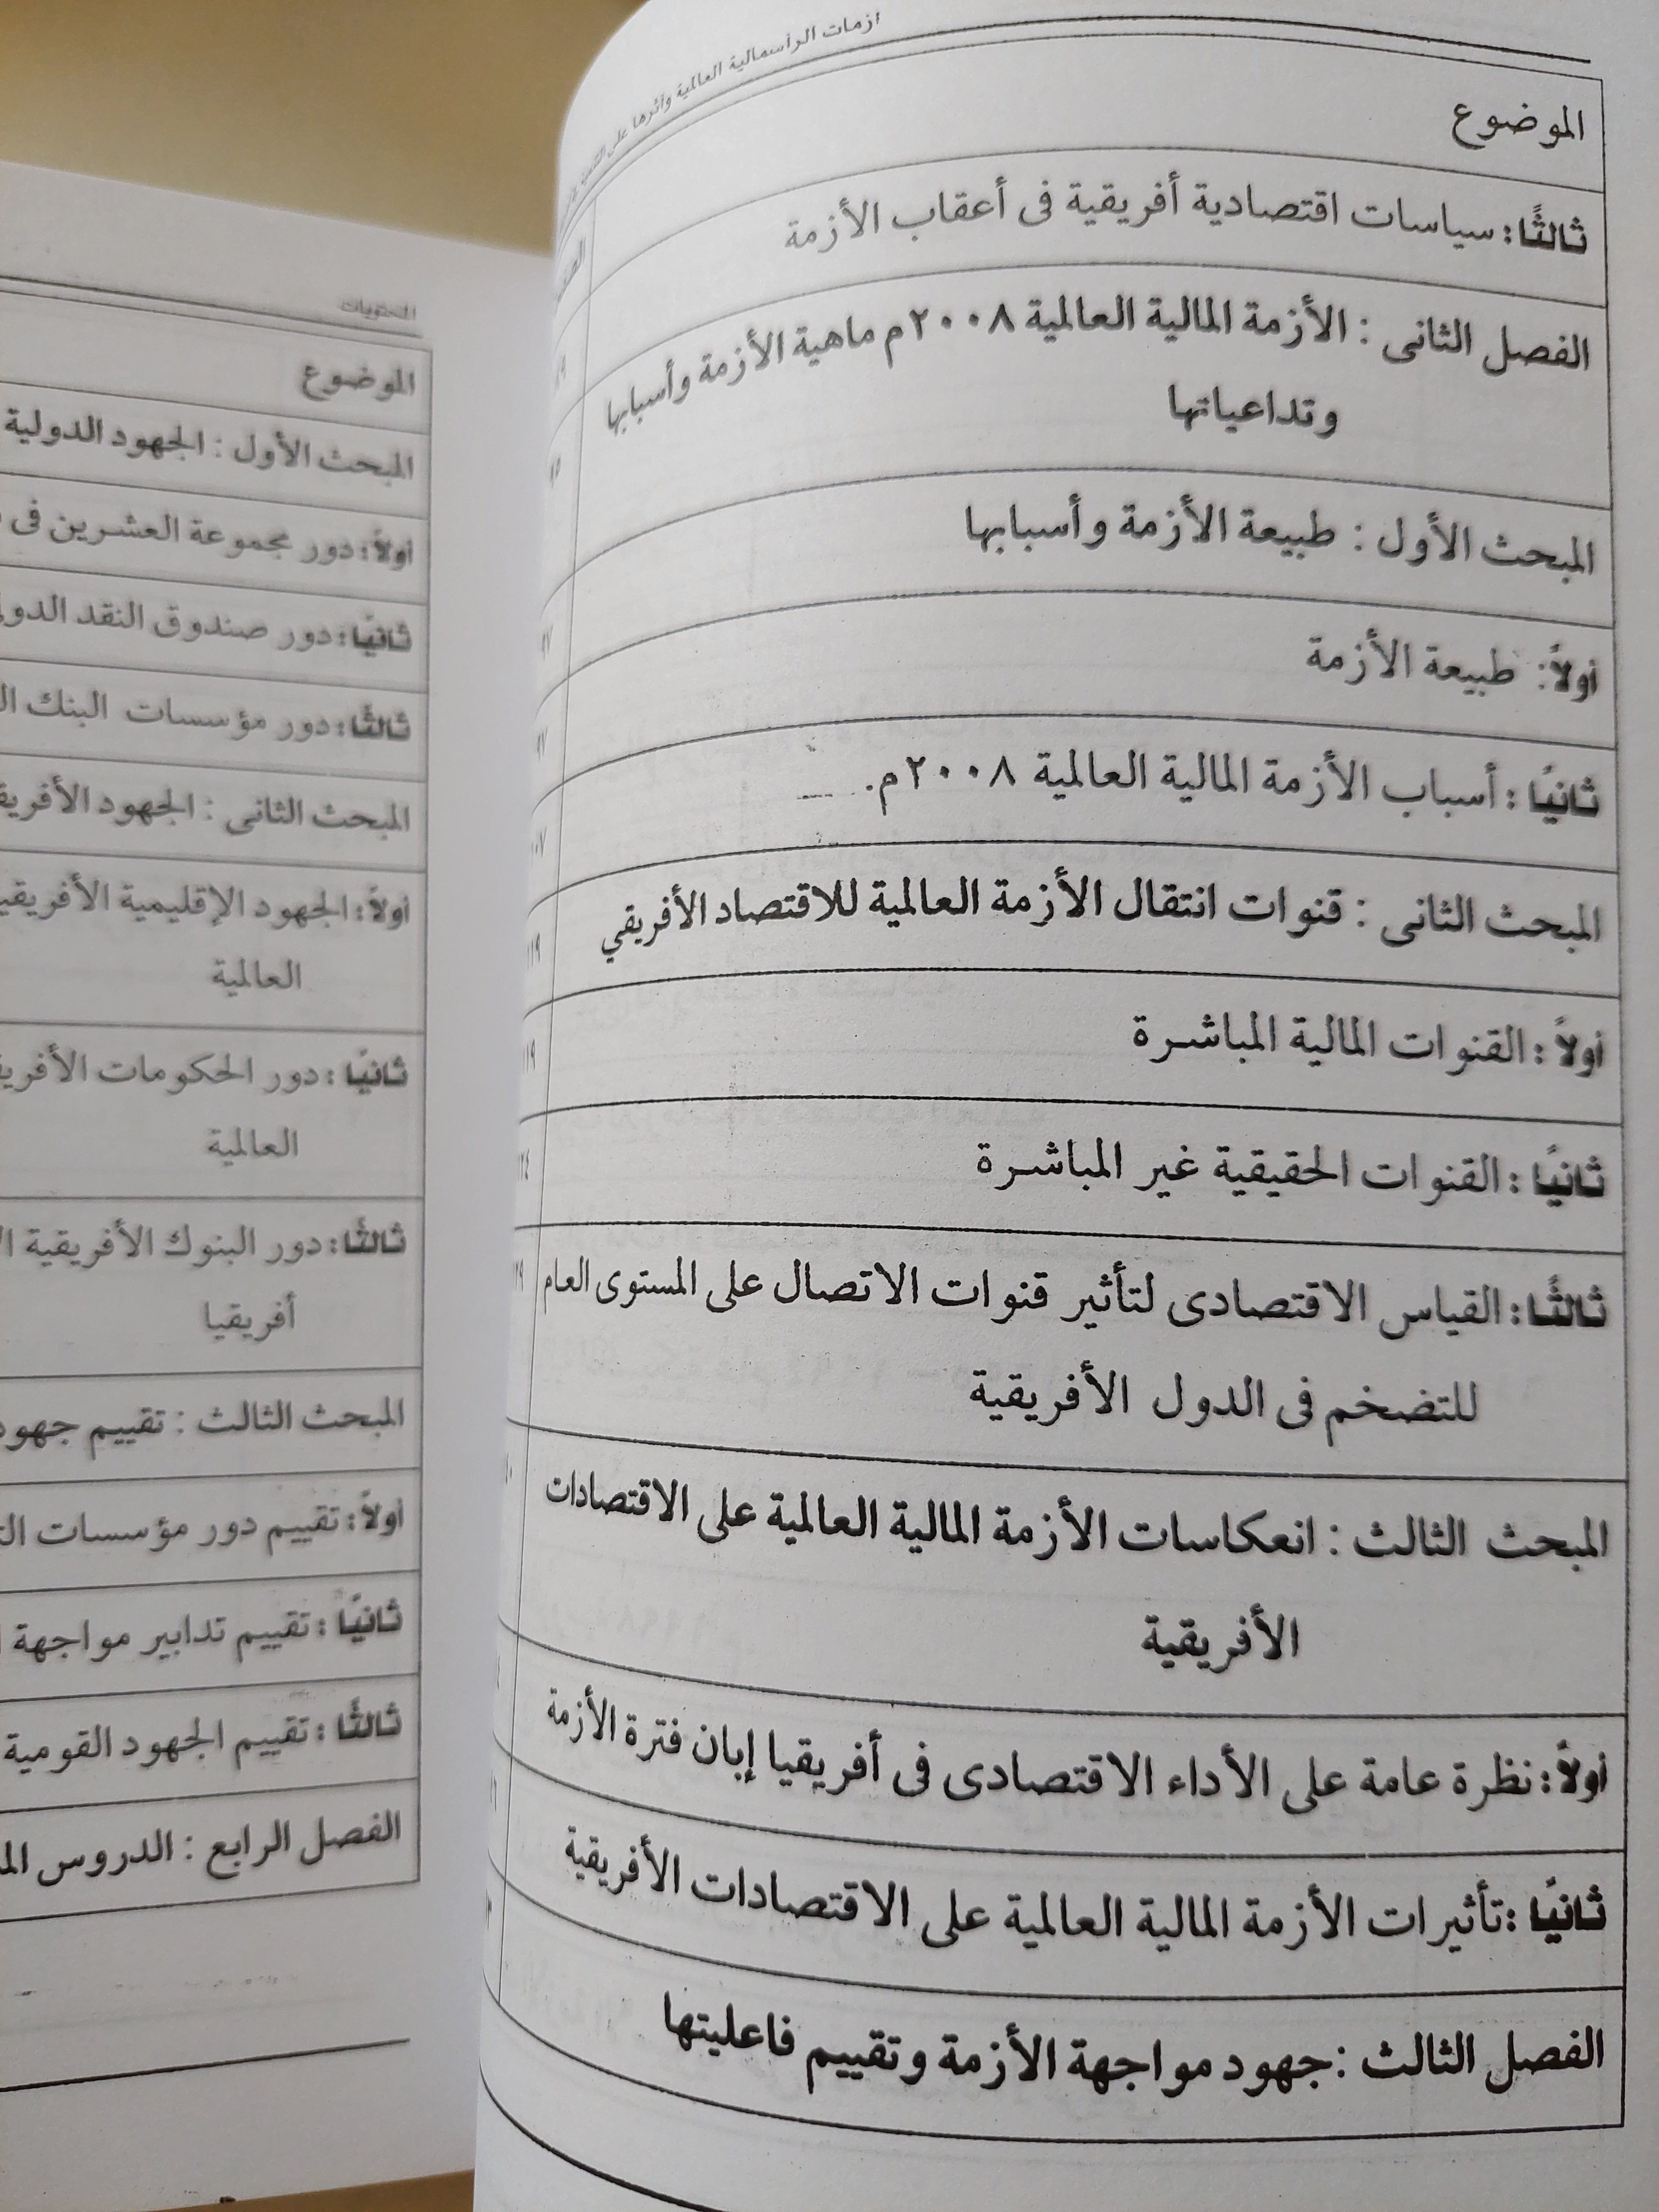 أزمات الرأسمالية العالمية وأثرها على
الموضوع
ثالثًا: سياسات اقتصادية أفريقية فى أعقاب الأزمة
الفصل الثانى : الأزمة المالية العالمية ٢٠٠٨م ماهية الأزمة وأسبابها
وتداعياتها
المبحث الأول : طبيعة الأزمة وأسبابها
أولاً: طبيعة الأزمة
ثانيًا : أسباب الأزمة المالية العالمية ٢٠٠٨م.
المبحث الثانى : قنوات انتقال الأزمة العالمية للاقتصاد الأفريقي
أولاً : القنوات المالية المباشرة
ثانيًا : القنوات الحقيقية غير المباشرة
ثالثًا: القياس الاقتصادى لتأثير قنوات الاتصال على المستوى العام
للتضخم فى الدول الأفريقية
المبحث الثالث : انعكاسات الأزمة المالية العالمية على الاقتصادات
الأفريقية
أولاً: نظرة عامة على الأداء الاقتصادى فى أفريقيا إبان فترة الأزمة
ثانيًا :تأثيرات الأزمة المالية العالمية على الاقتصادات الأفريقية
الفصل الثالث :جهود مواجهة الأزمة وتقييم فاعليتها
المحتويات
الموضوع
المبحث الأول : الجهود الدولية
أولاً: دور مجموعة العشرين فى
ثانيًا: دور صندوق النقد
ثالثًا: دور مؤسسات البنك
المبحث الثانى : الجهود
أولاً: الجهود الإقليمية
العالمية
ثانيًا : دور الحكومات
العالمية
ثالثًا: دور البنوك الأفريقية
أفريقيا
المبحث الثالث : تقييم
أولاً: تقييم دور مؤسسات
ثانيًا : تقييم تدابير مواجهة
ثالثًا : تقييم الجهود القومية
الفصل الرابع : الدروس